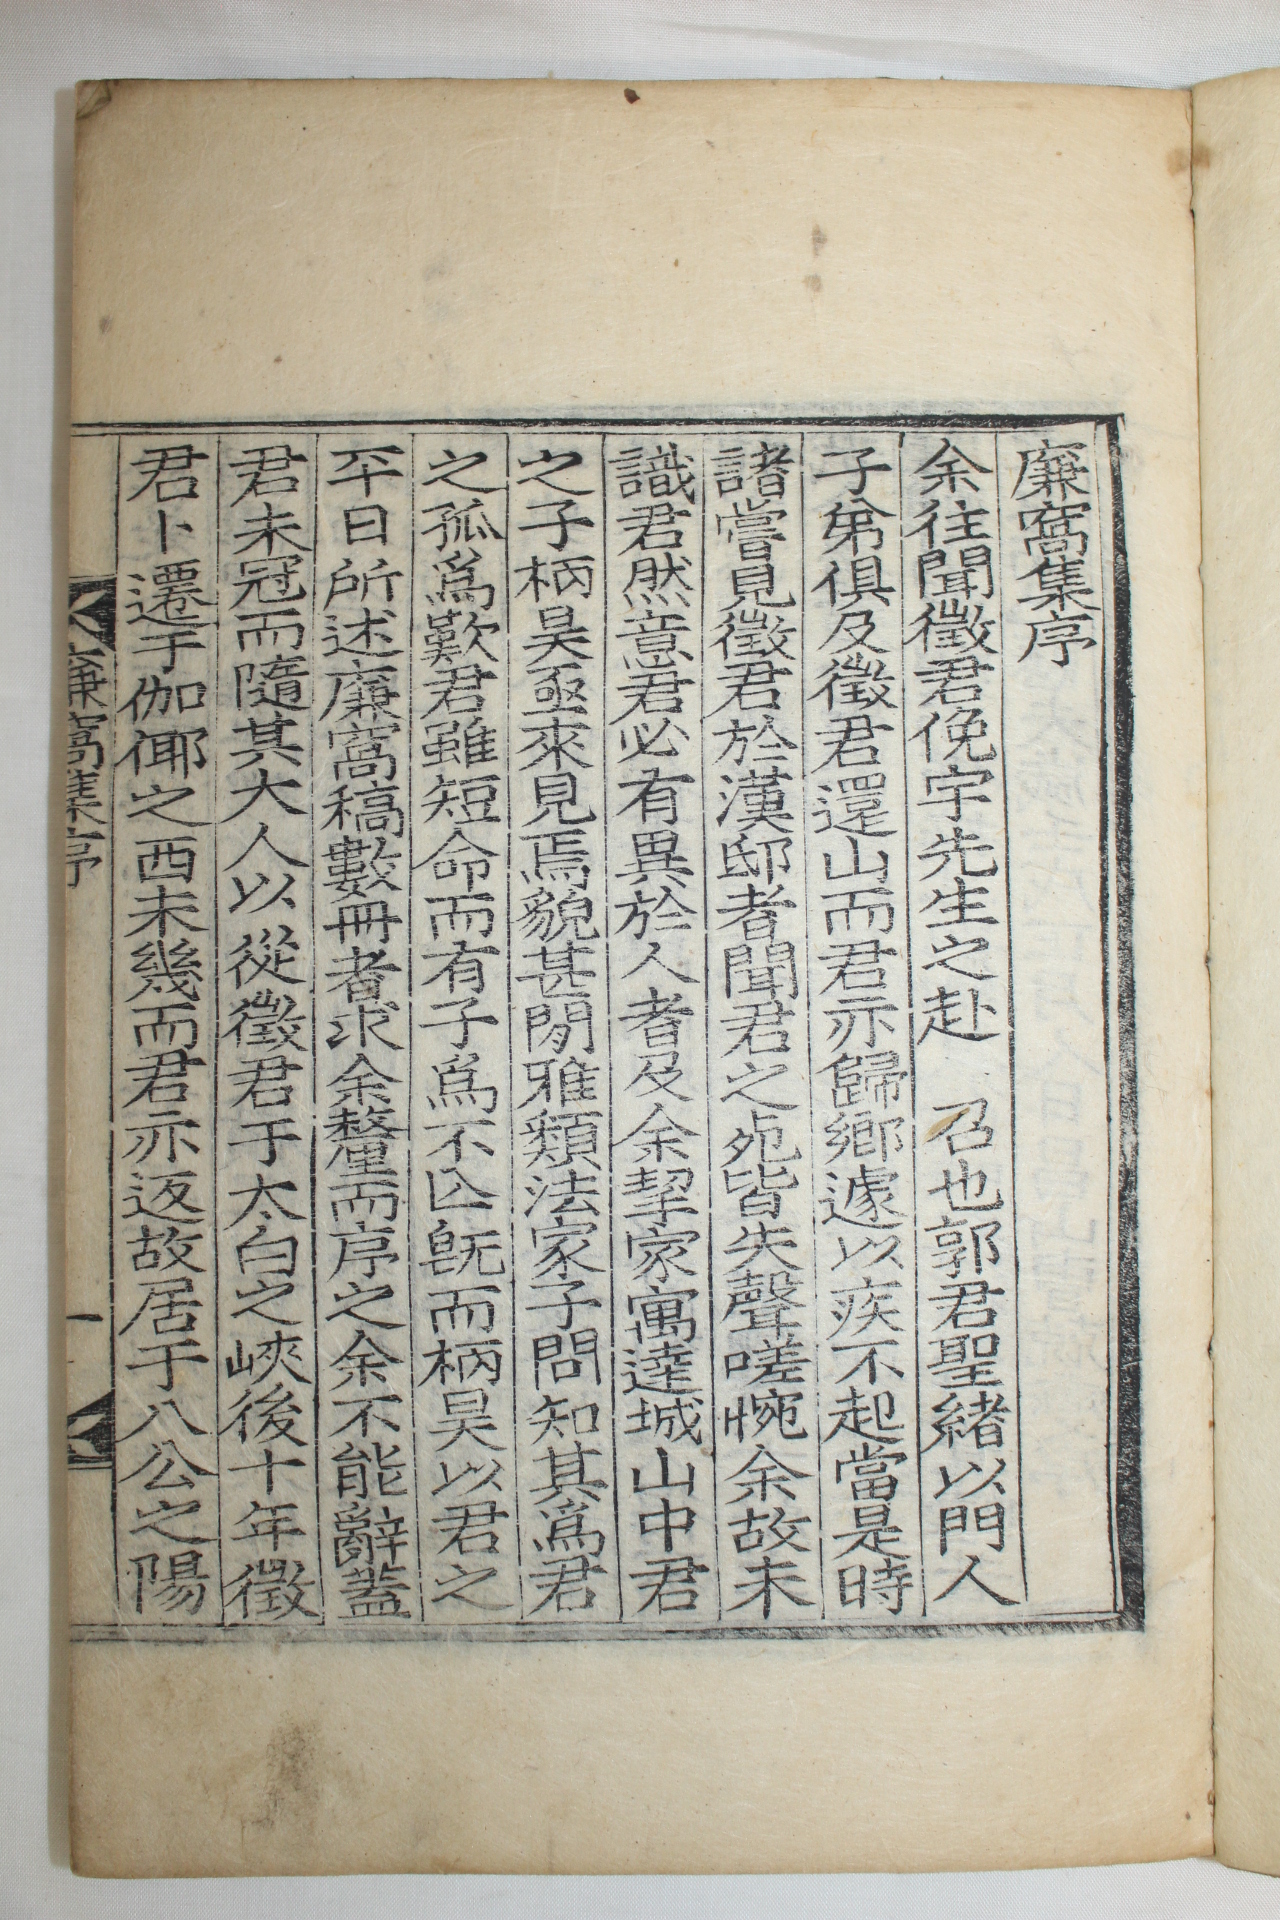 廉窩集序
余往聞徵君俛宇先生之赴　召也郭君聖緖以門人
子弟俱及徵君還山而君亦歸鄉遽以疾不起當是時
諸嘗見徵君於漢邸者聞君之死皆失聲嗟惋余故未
識君然意君必有異於人者及余挈家寓達城山中君
之子柄昊亟來見焉貌甚閒雅類法家子問知其爲君
之孤爲歎君雖短命而有子爲不亡旣而柄昊以君之
平日所述廉窩稿數冊者求余釐而序之余不能辭蓋
君未冠而隨其大人以從徵君于太白之峽後十年徵
君卜遷于伽倻之西未幾而君亦返故居于八公之陽
廉窩集序
一